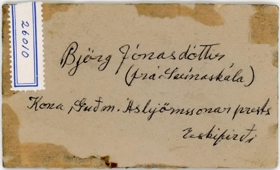 26010
Björg Jónasdóttir
(frá Svínaskála)
Kona Guðm. Ásbjörnssonar prests
Eskifirði